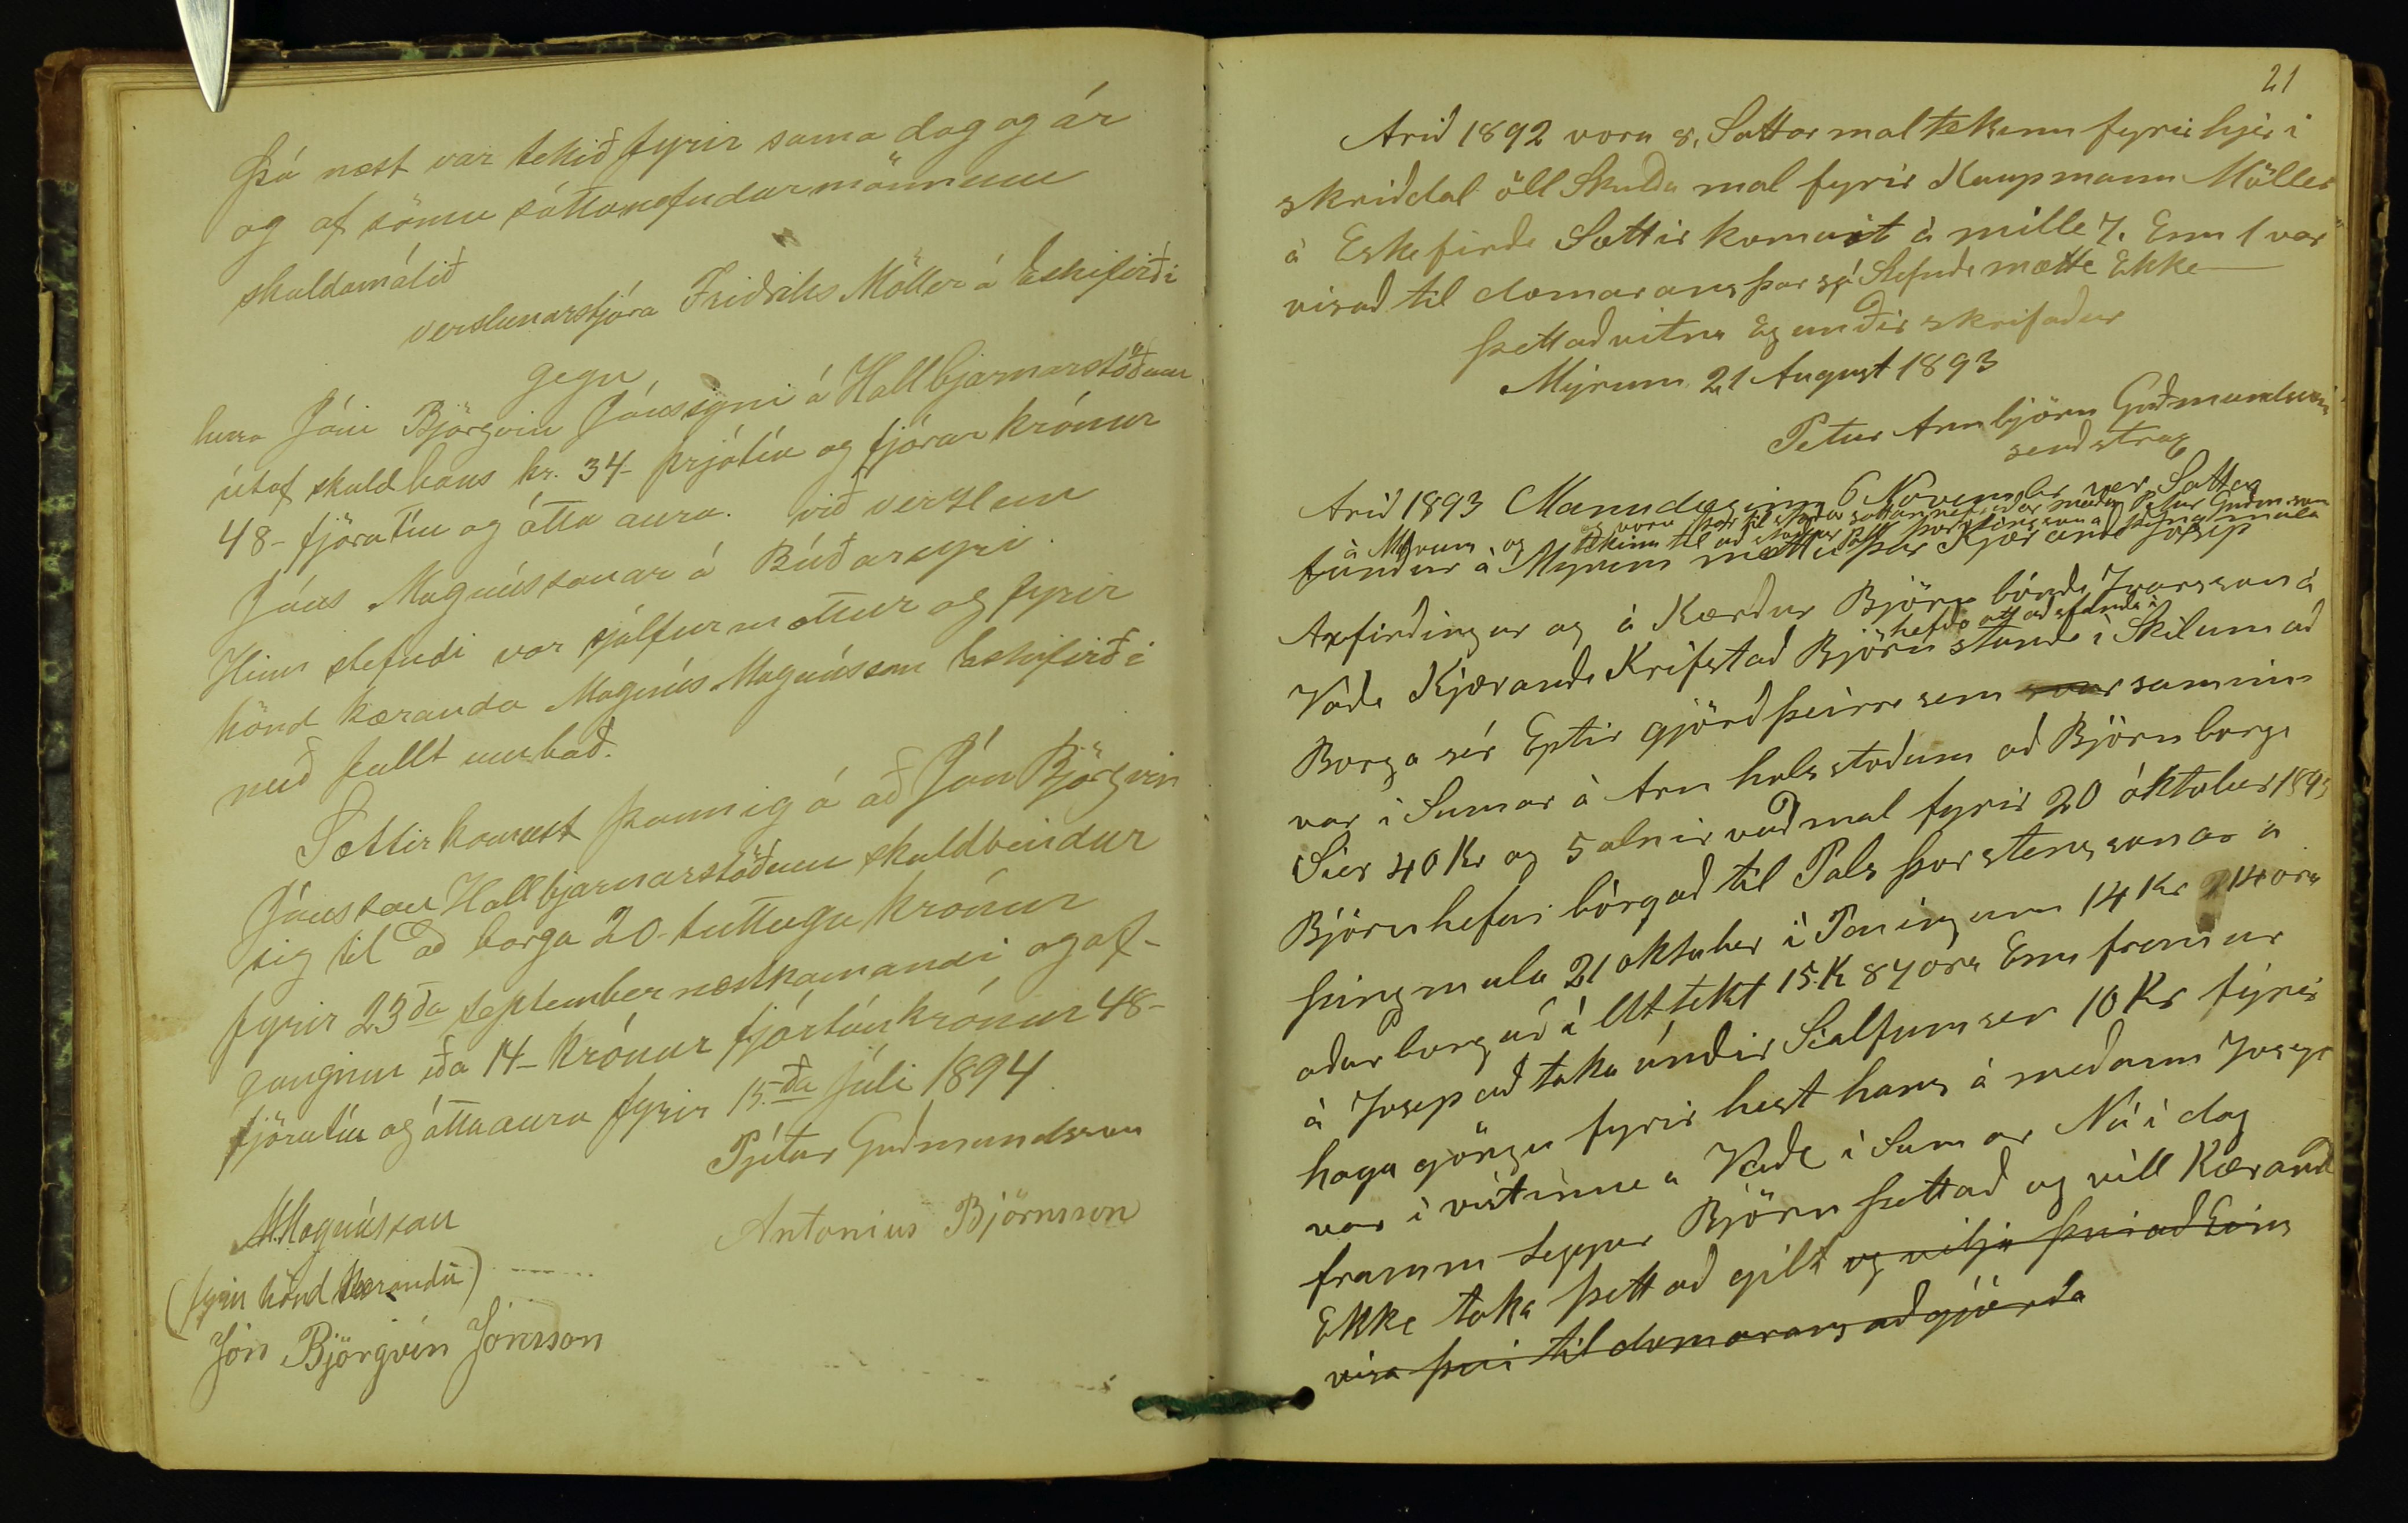 Þá næst var tekið fyrir sama dag og ár
og af sömu sáttanefndarmönnum
skuldamálið
verslunarstjóra Friðriks Möller á Eskifirði
gegn
herra Jóni Björgvin Jónssyni á Hallbjarnarstöðum
útaf skuld hans kr. 34- þrjátíu og fjórar krónur
48- fjörutíu og átta aura. við verslun
Jóns Magnússonar á Búðareyri.
Hinn stefndi var sjálfur mættur og fyrir
hönd kæranda Magnús Magnússon Eskifirði
með fullt umboð.
Sættir komust þannig á að Jón Björgvin
Jónsson Hallbjarnarstöðum skuldbindur
sig til að borga 20- tuttugu krónur
fyrir 23ða september næstkomandi og af-
ganginn eða 14- krónur fjórtán krónur 48-
fjörutíu og átta aura fyrir 15.ða júli 1894.
Pjetur Guðmundsson
M. Magnússon
Antonius Björnsson
(fyrir hönd kæranda)
Jón Björgvin Jónsson
21
Arið 1892 voru 8. Sattar mal tekenn fyrir hjer i
skriddal öll Skulda mal fyrir Kaupmann Möller
á Eskefirde Sættir komust á mille 7. Enn 1 var
visad til domarans þar sá Stefnde mætte Ekke
Þettad vitna Eg undir skrifadur
Myrum 21 August 1893
Petur Arnbjörn Guðmundsson
Arid 1893 Manudaginn 6 November var Satta
á Myrum og voru þar til staðar sattarnefndar menn Petur Guðm.son
fundur á Myrum mætti þar Kjærande Josep
Axfirdingur og á Kærdur Björn bónde Ivarsson á
Vade Kjærande Krifst ad Björn stande i Skilum ad
hefde att ad standa i
Borga sér Eptir gjörd þeirre sem samin
var i Sumar á Arnholsstodum ad Björn borge
Sier 40 Kr og 5 alnir vadmal fyrir 20 óktober 1893
Björn hefur börgad til Pals Þorsteinssonar á
Þingmula 21 oktuber i Peningum 14 Kr 14 ora
adur borgad i Uttekt 15. K 87 ora Enn fremur
á Josep ad taka undir Sialfum ser 10 Kr fyrir
haga göngu fyrir hest hans á medann Josep
var i vistinne a Vade i Sumar Nú i dag
framm leggur Björn þettad og vill Kærand
Ekke taka þettad gilt og vilja þvi ad Eins
visa þvi til domarans adgjörda